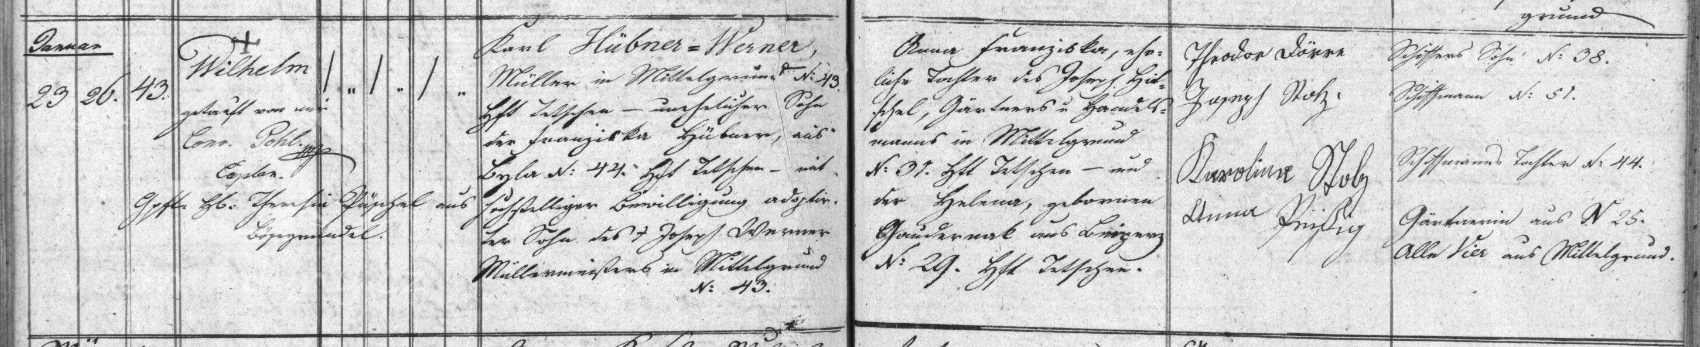 grund
Januar
23 26. 43.
Wilhelm
getauft von mir
Conr. Pohl
Caplan.
Gepfte Hb. Theresia Püschel aus
Karl Hübner=Werner,
Müller in Mittelgrund N: 43.
Hft Tetschen – unehelicher Sohn
der Franziska Hübner, aus
Byla N: 44. Hft Tetschen – mit
hochstelliger Bewilligung adoptir-
ter Sohn des † Joseph Werner
Müllermeisters in Mittelgrund
N: 43.
Anna Franziska, ehe-
liche Tochter des Joseph Hüb-
schel, Gärtners u Handels-
manns in Mittelgrund
N: 31. Hft Tetschen – und
der Helena, gebornen
Gaudernak aus
N: 29. Hft Tetschen.
Theodor Dörre
Joseph Stolz.
Karolina Stolz
Anna
Schiffers Sohn N: 38.
Schiffmann N: 51.
Schiffmanns Tochter N: 44.
Gärtnerin aus N 25.
Alle Vier aus Mittelgrund.